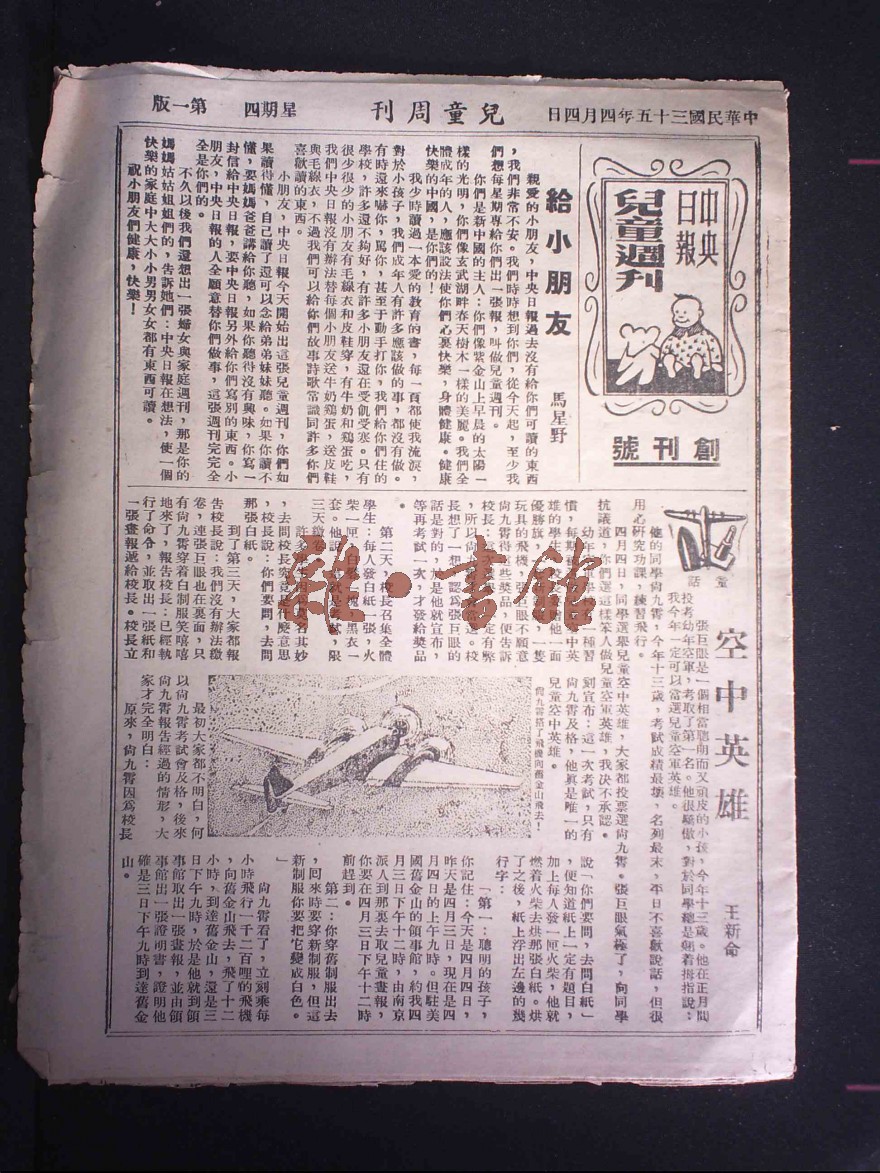 中華民國三十五年四月四日
兒童周刊
星期四
第一版
中央
日報
兒童週刊
創刊號
給小朋友
馬星野
親愛的小朋友,中央日報過去沒有給你們可讀的東西
,我們非常不安。我們時時想到你們,從今天起,至少我
們想每星期專給你們出一張報,叫做兒童週刊。
你們是新中國的主人:你們像紫金山上早晨的太陽一
樣的光明,你們像玄武湖畔春天樹木一樣的美麗。我們全
體成年的人,應該設法使你們心裏快樂,身體健康。健康
快樂的中國,是你們的!
我少時讀過一本愛的教育的書,每一頁都使我流淚,
對於小孩子,我們成年人有許多應該做的事,都沒有做。
有時還來嚇你,罵你,甚至于動手打你,我們給你們住的
學校,許多還不夠好,有許多小朋友還在受飢受寒。只有
很少很少的小朋友有毛線衣和皮鞋穿,有牛奶和鷄蛋吃,
我們中央日報沒有辦法替每個小朋友送牛奶鷄蛋,送皮鞋
與毛線衣,不過我們可以給你們故事詩歌常識同許多你們
喜歡讀的東西。
小朋友,中央日報今天開始出這張兒童週刊,你們如
果讀得懂,自己讀了還可以念給弟弟妹妹聽。如果你讀不
懂,要媽媽爸爸講給你聽,如果你聽得沒有興味,你寫一
封信給中央日報,要中央日報另外給你們寫別的東西。小
朋友,中央日報的人全願意替你們做事,這張週刊完完全
全是你們的。
不久以後我們還想出一張婦女與家庭週刊,那是你的
媽媽姑姑姐姐們的,告訴她們:中央日報在想法,使一個
快樂的家庭中大大小小男男女女都有東西可讀。
祝小朋友們健康,快樂!
童話
空中英雄
王新命
張巨眼是一個相當聰明而又頑皮的小孩,今年十三歲。他在正月間
投考幼年空軍,考取了第一名。他很驕傲,對於同學總是翹着拇指說:
我今年一定可以當選兒童空軍英雄。
他的同學尙九霄,今年十三歲,考試成績最壞,名列最末,平日不喜歡說話,但很
用心研究功課,練習飛行。
四月四日,同學選舉兒童空中英雄,大家都投票選尙九霄。張巨眼氣極了,向同學
抗議道,你們選這樣笨人做兒童空軍英雄,我决不承認。
幼年空軍學校有一種習
慣,每期
雄的學生,校長
優勝旗,
玩具的飛機,
尙九霄得這些獎品,便告訴
校長:這次選
,所以
長想了一想,認爲張巨眼的
話是對的,於是他就宣布,
等再考試一次,才發給獎品
。
第二天,校長召集全體
學生:每人發白紙一張,火
柴一匣,白
套。他說:
三天繳卷
許多學生
,去問校長究竟是什麼意思
,校長說:你們要問,去問
那張白紙。
到了第三天,大家都報
告校長說:我們沒有辦法繳
卷,連張巨眼也在裏面,只
有尙九霄穿着白制服笑嘻嘻
地來了,報告校長:已經執
行了命令,並取出一張紙和
一張畫報遞給校長。校長立
刻宣布:這一次考試,只有
尙九霄及格,他眞是唯一的
兒童空中英雄。
尙九霄搭了飛機向舊金山飛去!
最初大家都不明白,何
以尙九霄考試會及格,後來
尙九霄報告經過的情形,大
家才完全明白:
原來,尙九霄因爲校長
說「你們要問,去問白紙」
,便知道紙上一定有題目,
加上每人發一匣火柴,他就
燃着火柴去烘那張白紙。烘
了之後,紙上浮出左邊的幾
行字:
「第一:聰明的孩子,
你記住:今天是四月四日,
昨天是四月三日,現在是四
月四日的上午九時。但駐美
國舊金山的領事館,約我四
月三日下午十二時,由南京
派人到那裏去取兒童畫報,
你要在四月三日下午十二時
前趕到。
第二:你穿舊制服出去
,囘來時要穿新制服,但這
新制服你要把它變成白色。
」
尙九霄看了,立刻乘每
小時飛行一千二百哩的飛機
,向舊金山飛去,飛了十二
小時,到達舊金山,還是三
日下午九時,於是他就到領
事館取出一張畫報,並由領
事館出一張證明書,證明他
確是三日下午九時到達舊金
山。
雅·書館